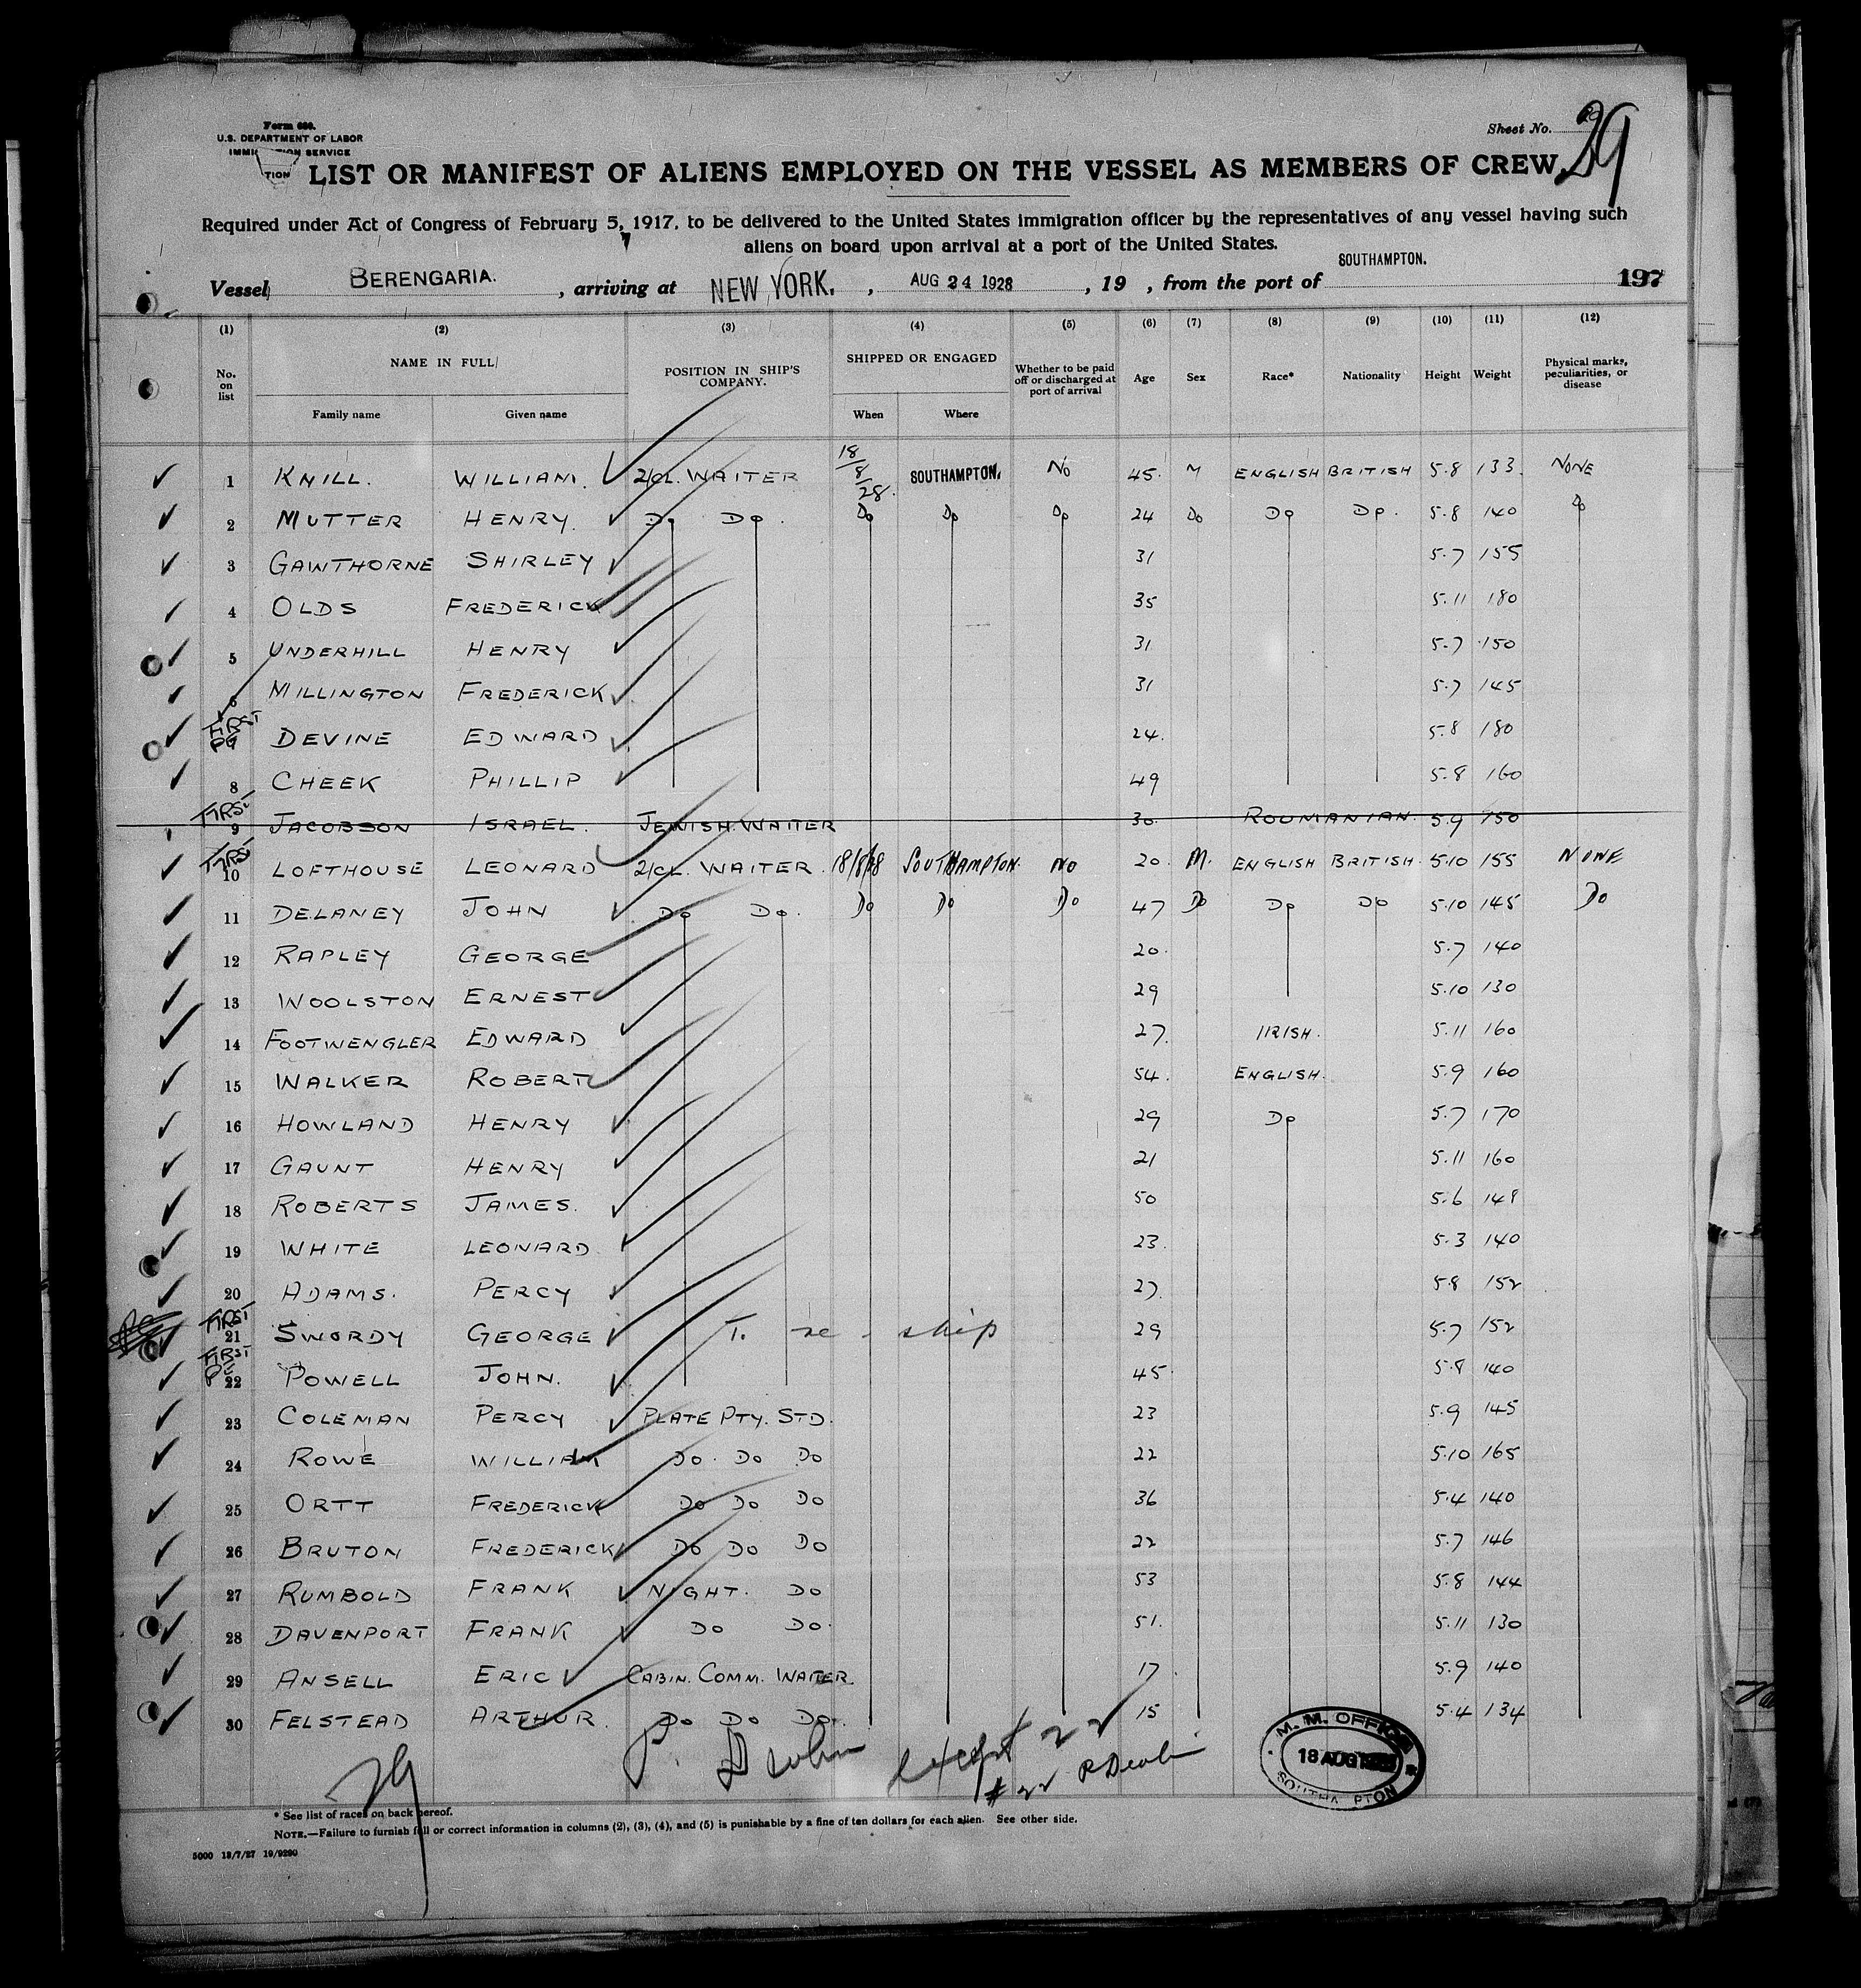 Form 680.
U.S. DEPARTMENT OF LABOR
IMMIGRATION SERVICE
Sheet No. 29
LIST OR MANIFEST OF ALIENS EMPLOYED ON THE VESSEL AS MEMBERS OF CREW
Required under Act of Congress of February 5, 1917, to be delivered to the United States immigration officer by the representatives of any vessel having such
aliens on board upon arrival at a port of the United States.
Vessel BERENGARIA. , arriving at NEW YORK. , AUG 24 1928 , 19 , from the port of SOUTHAMPTON. 197
(1) (2) (3) (4) (5) (6) (7) (8) (9) (10) (11) (12)
No. on list NAME IN FULL POSITION IN SHIP'S COMPANY. SHIPPED OR ENGAGED Whether to be paid off or discharged at port of arrival Age Sex Race* Nationality Height Weight Physical marks, peculiarities, or disease
Family name Given name When Where
1 KNILL. WILLIAM. 2/CL. WAITER 18/8/28. SOUTHAMPTON. NO 45. M ENGLISH BRITISH 5.8 133. NONE
2 MUTTER HENRY. DO DO. DO DO DO 24 DO DO DO. 5.8 140 DO
3 GAWTHORNE SHIRLEY 31 5.7 155
4 OLDS FREDERICK 35 5.11 180
5 UNDERHILL HENRY 31 5.7 150
6 MILLINGTON FREDERICK 31 5.7 145
FIRST DEVINE EDWARD 24. 5.8 180
8 CHEEK PHILLIP 49 5.8 160
FIRST 9 JACOBSON ISRAEL. JEWISH. WAITER 30. ROUMANIAN. 5.9 150
FIRST 10 LOFTHOUSE LEONARD 2/CL. WAITER. 18/8/28 SOUTHAMPTON. NO 20. M. ENGLISH BRITISH. 5.10 155 NONE
11 DELANEY JOHN DO DO. DO DO DO 47 DO DO DO 5.10 145 DO
12 RAPLEY GEORGE 20. 5.7 140
13 WOOLSTON ERNEST 29 5.10 130
14 FOOTWENGLER EDWARD 27. IRISH. 5.11 160
15 WALKER ROBERT 54. ENGLISH. 5.9 160
16 HOWLAND HENRY 29 DO 5.7 170
17 GAUNT HENRY 21 5.11 160
18 ROBERTS JAMES. 50 5.6 148
19 WHITE LEONARD. 23. 5.3 140
20 ADAMS. PERCY 27. 5.8 152
FIRST 21 SWORDY GEORGE T. re-ship 29 5.7 152
FIRST 22 POWELL JOHN. 45. 5.8 140
23 COLEMAN PERCY PLATE PTY. STD. 23 5.9 145
24 ROWE WILLIAM DO. DO DO 22 5.10 165
25 ORTT FREDERICK DO DO DO 36 5.4 140
26 BRUTON FREDERICK DO DO DO 22 5.7 146
27 RUMBOLD FRANK NIGHT. DO 53 5.8 144
28 DAVENPORT FRANK DO DO. 51. 5.11 130
29 ANSELL ERIC CABIN. COMM. WAITER 17. 5.9 140
30 FELSTEAD ARTHUR. DO DO DO. 15 5.4 134
except 22
#22
29
M. M. OFFICE
18 AUG 1928
SOUTHAMPTON
* See list of races on back hereof.
NOTE.—Failure to furnish full or correct information in columns (2), (3), (4), and (5) is punishable by a fine of ten dollars for each alien. See other side.
5000 13/7/27 19/9290